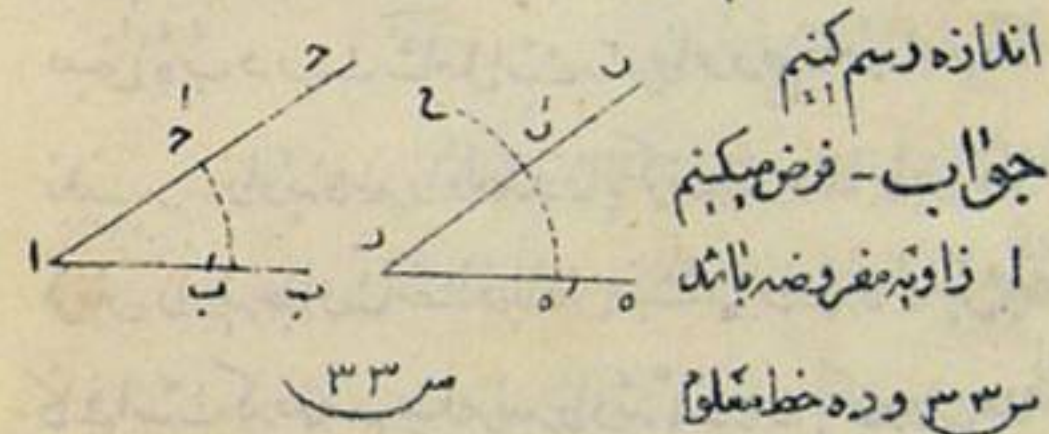 اندازه رسم کنیم
جواب - فرض میکنیم
ا زاویه مفروضه باشد
س ۳۳ و ده خط معلوم
س ۳۳
ا ب بَ
د ه هَ ح